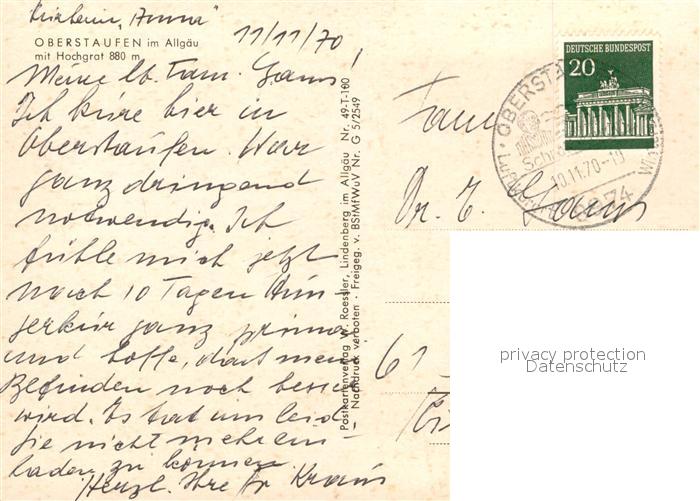 Kurheim "Anna"
11/11/70
OBERSTAUFEN im Allgäu
mit Hochgrat 880 m
Meine lb. Fam. Gans!
Ich kure hier in
Oberstaufen. War
ganz dringend
notwendig. Ich
fühle mich jetzt
nach 10 Tagen Hun-
gerkur ganz prima
und hoffe, dass mein
Befinden noch besser
wird. Es tat uns leid
Sie nicht mehr ein-
laden zu können.
Herzl. Ihre Kraus
Postkartenverlag W. Roessler, Lindenberg im Allgäu Nr. 49-T-160
Nachdruck verboten · Freigeg. v. BStMfWuV Nr. G 5/2549
DEUTSCHE BUNDESPOST
20
OBERSTAUFEN
Schroth
10.11.70-19
Fam.
Dr. E. Gans
61
privacy protection
Datenschutz